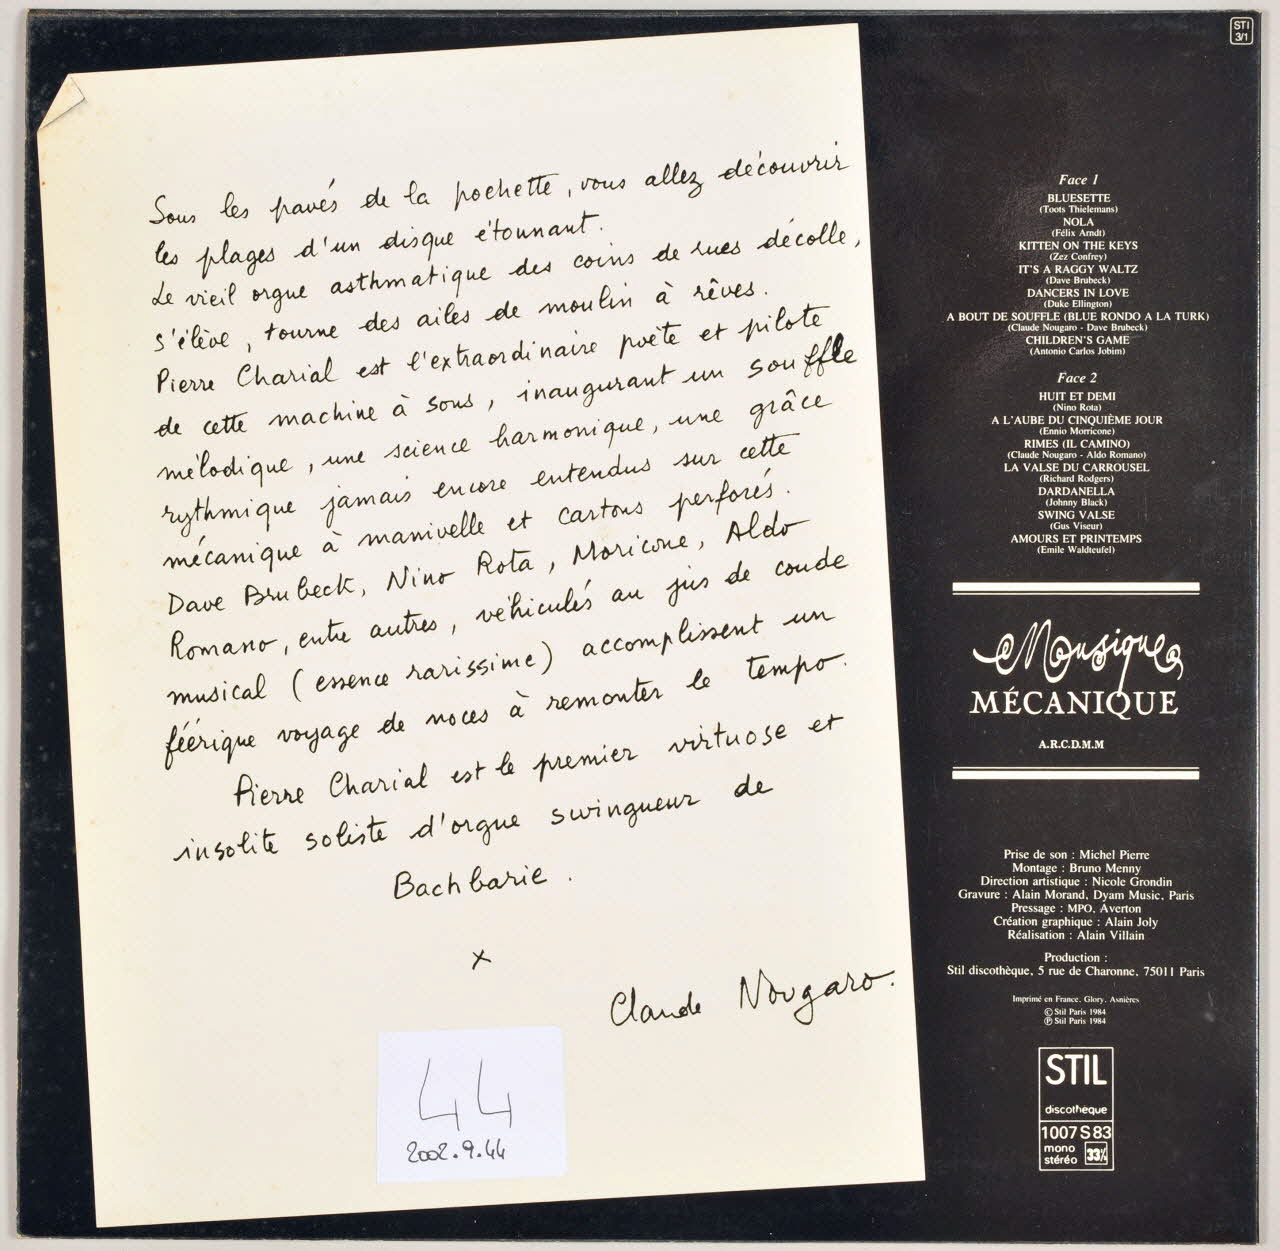 Sous les pavés de la pochette, vous allez découvrir
les plages d'un disque étonnant.
Le vieil orgue asthmatique des coins de rues décolle,
s'élève, tourne des ailes de moulin à rêves.
Pierre Charial est l'extraordinaire poète et pilote
de cette machine à sons, inaugurant un souffle
mélodique, une science harmonique, une grâce
rythmique jamais encore entendus sur cette
mécanique à manivelle et cartons perforés.
Dave Brubeck, Nino Rota, Moricone, Aldo
Romano, entre autres, véhiculés au jus de coude
musical (essence rarissime) accomplissent un
féérique voyage de noces à remonter le tempo.
Pierre Charial est le premier virtuose et
insolite soliste d'orgue swingueur de
Bachbarie.
x
Claude Nougaro.
44
2002.9.44
STI
3/1
Face 1
BLUESETTE
(Toots Thielemans)
NOLA
(Félix Arndt)
KITTEN ON THE KEYS
(Zez Confrey)
IT'S A RAGGY WALTZ
(Dave Brubeck)
DANCERS IN LOVE
(Duke Ellington)
A BOUT DE SOUFFLE (BLUE RONDO A LA TURK)
(Claude Nougaro - Dave Brubeck)
CHILDREN'S GAME
(Antonio Carlos Jobim)
Face 2
HUIT ET DEMI
(Nino Rota)
A L'AUBE DU CINQUIÈME JOUR
(Ennio Morricone)
RIMES (IL CAMINO)
(Claude Nougaro - Aldo Romano)
LA VALSE DU CARROUSEL
(Richard Rodgers)
DARDANELLA
(Johnny Black)
SWING VALSE
(Gus Viseur)
AMOURS ET PRINTEMPS
(Emile Waldteufel)
Musique
MÉCANIQUE
A.R.C.D.M.M
Prise de son : Michel Pierre
Montage : Bruno Menny
Direction artistique : Nicole Grondin
Gravure : Alain Morand, Dyam Music, Paris
Pressage : MPO, Averton
Création graphique : Alain Joly
Réalisation : Alain Villain
Production :
Stil discothèque, 5 rue de Charonne, 75011 Paris
Imprimé en France. Glory. Asnières
© Stil Paris 1984
℗ Stil Paris 1984
STIL
discothèque
1007 S 83
mono
stéréo 33⅓